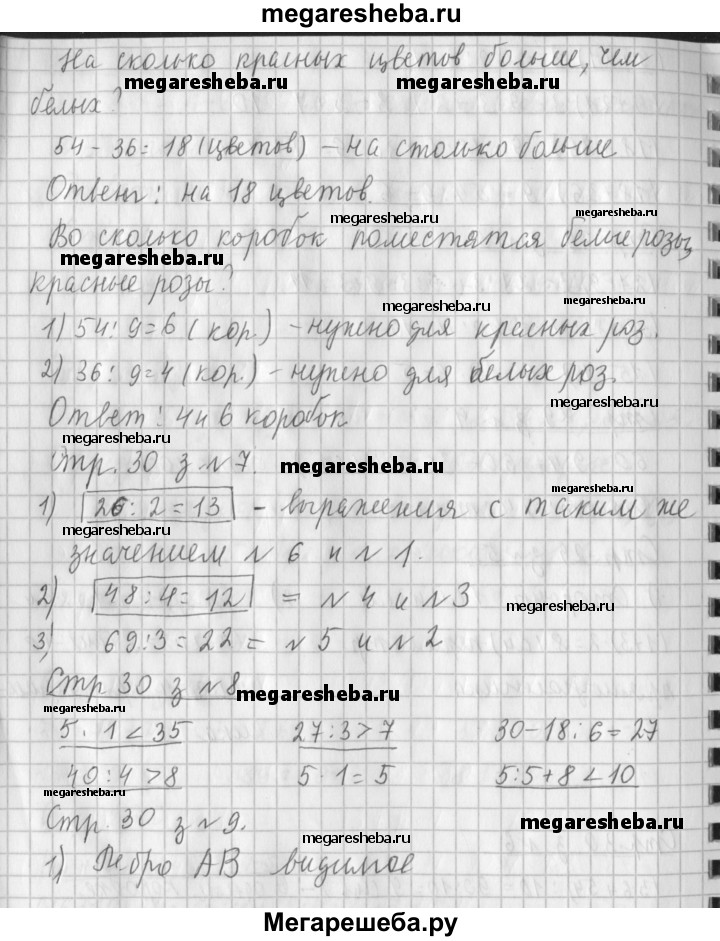 megaresheba.ru
На сколько красных цветов больше, чем
megaresheba.ru megaresheba.ru
белых?
54 - 36 = 18 (цветов) - на столько больше
Ответ: на 18 цветов.
megaresheba.ru megaresheba.ru
Во сколько коробок поместятся белые розы,
megaresheba.ru
красные розы?
megaresheba.ru megaresheba.ru
1) 54 : 9 = 6 (кор.) - нужно для красных роз.
2) 36 : 9 = 4 (кор.) - нужно для белых роз.
Ответ: 4 и 6 коробок
megaresheba.ru
megaresheba.ru
Стр. 30 з № 7.
megaresheba.ru
megaresheba.ru
1) 26 : 2 = 13 - выражения с таким же
megaresheba.ru
значением № 6 и № 1.
2) 48 : 4 = 12 = № 4 и № 3
megaresheba.ru
3) 69 : 3 = 22 = № 5 и № 2
Стр 30 з № 8
megaresheba.ru
megaresheba.ru megaresheba.ru
5 · 1 < 35 27 : 3 > 7 30 - 18 : 6 = 27
40 : 4 > 8 5 · 1 = 5 5 : 5 + 8 < 10
megaresheba.ru megaresheba.ru
Стр. 30 з № 9.
megaresheba.ru
megaresheba.ru
1) Ребро АВ видимое
Мегарешеба.ру